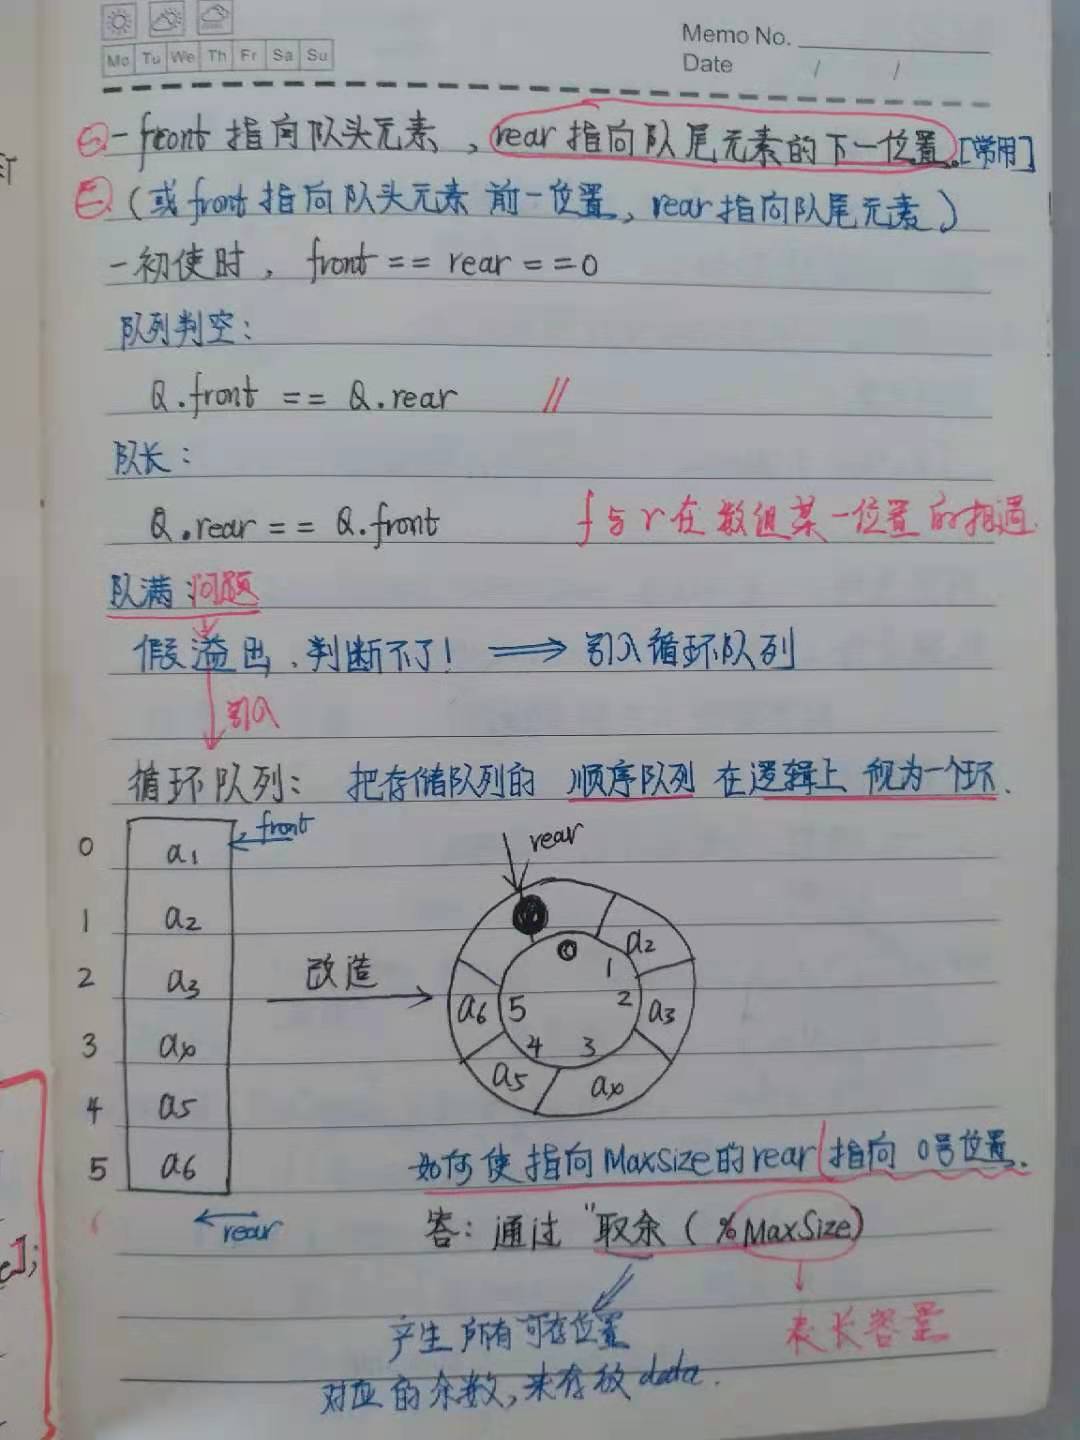 Memo No.
Mo Tu We Th Fr Sa Su
Date / /
㊀-front 指向队头元素，rear指向队尾元素的下一位置.[常用]
㊁（或front指向队头元素 前一位置，rear指向队尾元素）
-初使时，front == rear == 0
队列判空：
Q.front == Q.rear //
队长：
Q.rear == Q.front f与r在数组某一位置的相遇.
队满:问题
假溢出、判断不了！ ⟹ 引入循环队列
引入
循环队列： 把存储队列的 顺序队列 在逻辑上 视为一个环.
front
rear
0 a1
1 a2
2 a3
3 a4
4 a5
5 a6
改造
0 1 2 3 4 5
a2 a3 a4 a5 a6
如何使指向MaxSize的rear 指向 0号位置.
rear
答：通过"取余（%MaxSize）
表长容量
产生所有可存位置
对应的余数，来存放data.